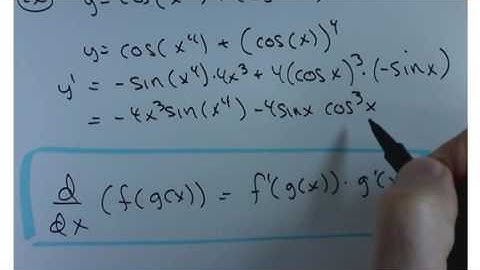 y = cos(x⁴) + (cos(x))⁴
y' = -sin(x⁴)·4x³ + 4(cosx)³·(-sinx)
= -4x³sin(x⁴) - 4sinx cos³x
d/dx (f(g(x)) = f'(g(x))·g'(